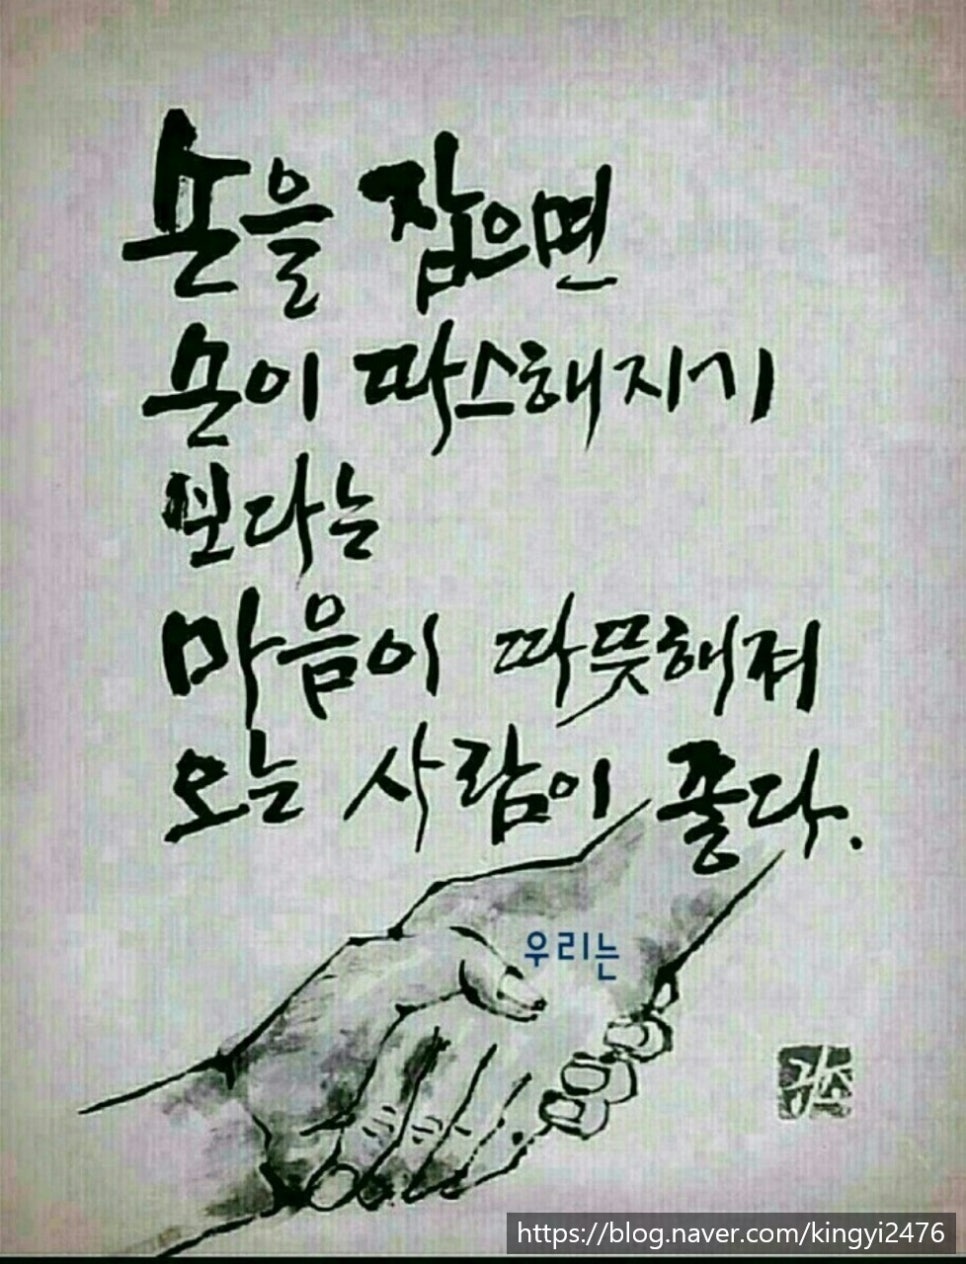 손을 잡으면
손이 따스해지기
보다는
마음이 따뜻해져
오는 사람이 좋다.
우리는
https://blog.naver.com/kingyi2476